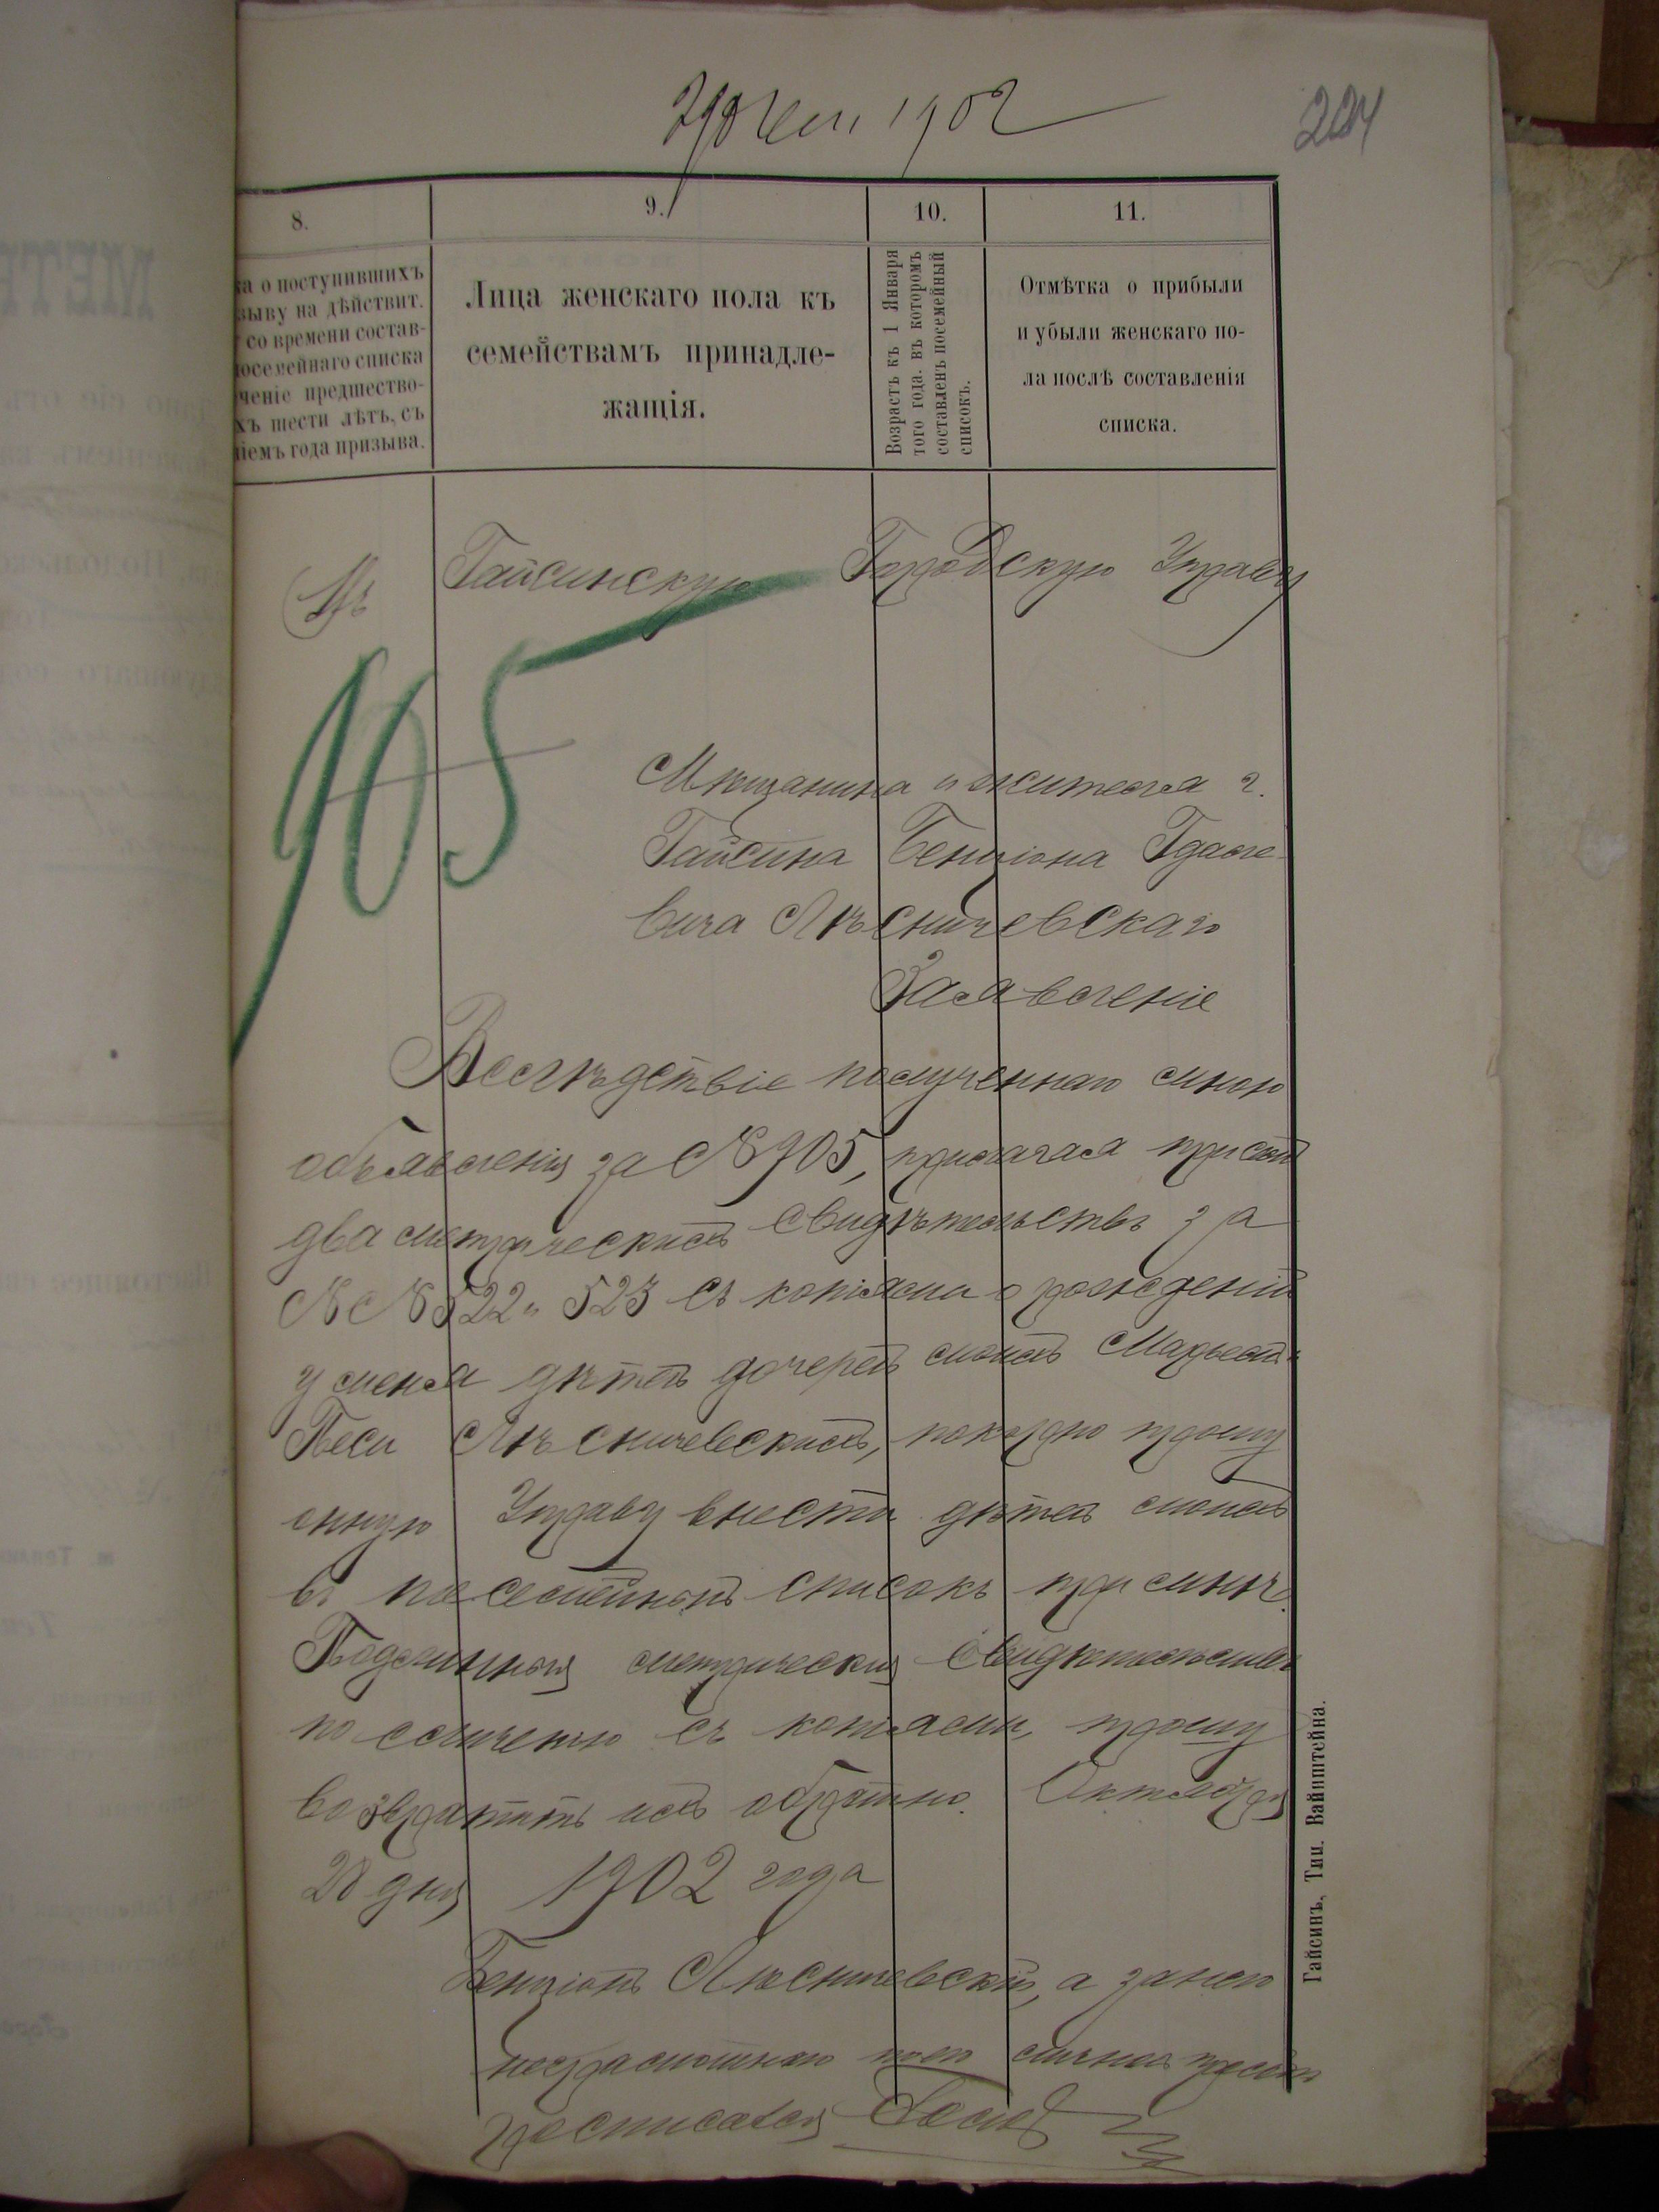 1902
224
8.
9.
10.
11.
ка о поступившихъ
зыву на дѣйствит.
со времени состав-
посемейнаго списка
ченіе предшество-
хъ шести лѣтъ, съ
ніемъ года призыва.
Лица женскаго пола къ
семействамъ принадле-
жащія.
Возрастъ къ 1 Января
того года. въ которомъ
составленъ посемейный
списокъ.
Отмѣтка о прибыли
и убыли женскаго по-
ла послѣ составленія
списка.
Въ Гайсинскую Городскую Управу
905
Мѣщанина и жителя г.
Гайсина Бенціона Гдале-
вича Лѣсничевскаго
Заявленіе
Вслѣдствіе полученнаго мною
объявленія за № 905, прилагая при семъ
два метрическихъ свидѣтельствъ за
№№ 522 и 523 съ копіями о рожденіи
у меня дѣтей дочерей моихъ Марьемъ
Песи Лѣсничевскихъ, покорно прошу
оную Управу внести дѣтей моихъ
въ посемейный списокъ при мнѣ.
Подлинныя метрическия свидѣтельства
по сличенью съ копіями, прошу
возвратить ихъ обратно. Октября
28 дня 1902 года
Бенціонъ Лѣсничевскій, а за него
неграмотнаго по его личной прозьбѣ
росписался
Гайсинъ, Тип. Вайнштейна.